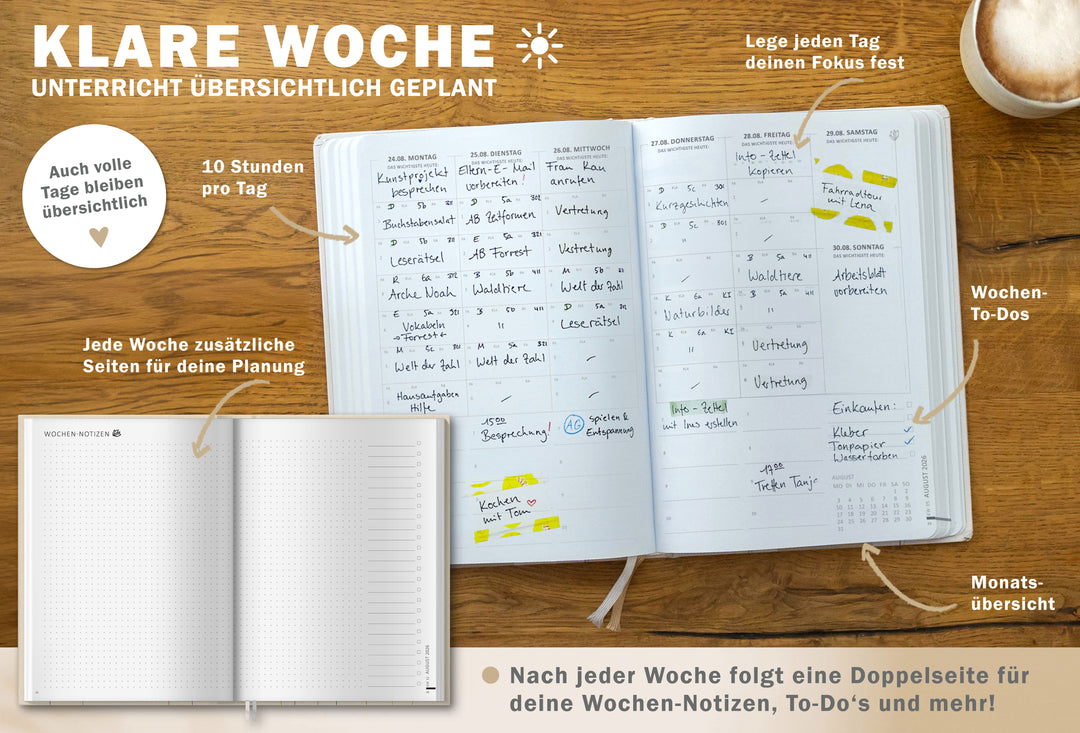 KLARE WOCHE
UNTERRICHT ÜBERSICHTLICH GEPLANT
Auch volle
Tage bleiben
übersichtlich
10 Stunden
pro Tag
Lege jeden Tag
deinen Fokus fest
Jede Woche zusätzliche
Seiten für deine Planung
Wochen-
To-Dos
Monats-
übersicht
24.08. MONTAG
DAS WICHTIGSTE HEUTE:
Kunstprojekt
besprechen
D 5b 311
Buchstabensalat
D 5b 311
Leserätsel
R 6a 312
Arche Noah
E 5a 311
Vokabeln
→Forrest←
M 5c 301
Welt der Zahl
Hausaufgaben
Hilfe
25.08. DIENSTAG
DAS WICHTIGSTE HEUTE:
Eltern-E-Mail
vorbereiten!
D 5a 301
AB Zeitformen
E 5a 301
AB Forrest
B 5b 411
Waldtiere
B 5b 411
"
M 5b 301
Welt der Zahl
1500
Besprechung!
Kochen
mit Tom
26.08. MITTWOCH
DAS WICHTIGSTE HEUTE:
Frau Rau
anrufen
Vertretung
Vertretung
M 5b 311
Welt der Zahl
D 5a 301
Leserätsel
AG
Spielen &
Entspannung
27.08. DONNERSTAG
DAS WICHTIGSTE HEUTE:
D 5c 301
Kurzgeschichten
D 5c 301
"
K 6a K1
Naturbilder
K 6a K1
Info-Zettel
mit Ines erstellen
28.08. FREITAG
DAS WICHTIGSTE HEUTE:
Info-Zettel
Kopieren
B 5a 411
Waldtiere
B 5a 411
"
Vertretung
Vertretung
1700
Treffen Tanja
29.08. SAMSTAG
DAS WICHTIGSTE HEUTE:
Fahrradtour
mit Lena
30.08. SONNTAG
DAS WICHTIGSTE HEUTE:
Arbeitsblatt
vorbereiten
Einkaufen:
Kleber
Tonpapier
Wasserfarben
AUGUST
MO DI MI DO FR SA SO
1 2
3 4 5 6 7 8 9
10 11 12 13 14 15 16
17 18 19 20 21 22 23
24 25 26 27 28 29 30
31
AUGUST 2026
WOCHEN-NOTIZEN
AUGUST 2026
Nach jeder Woche folgt eine Doppelseite für
deine Wochen-Notizen, To-Do's und mehr!